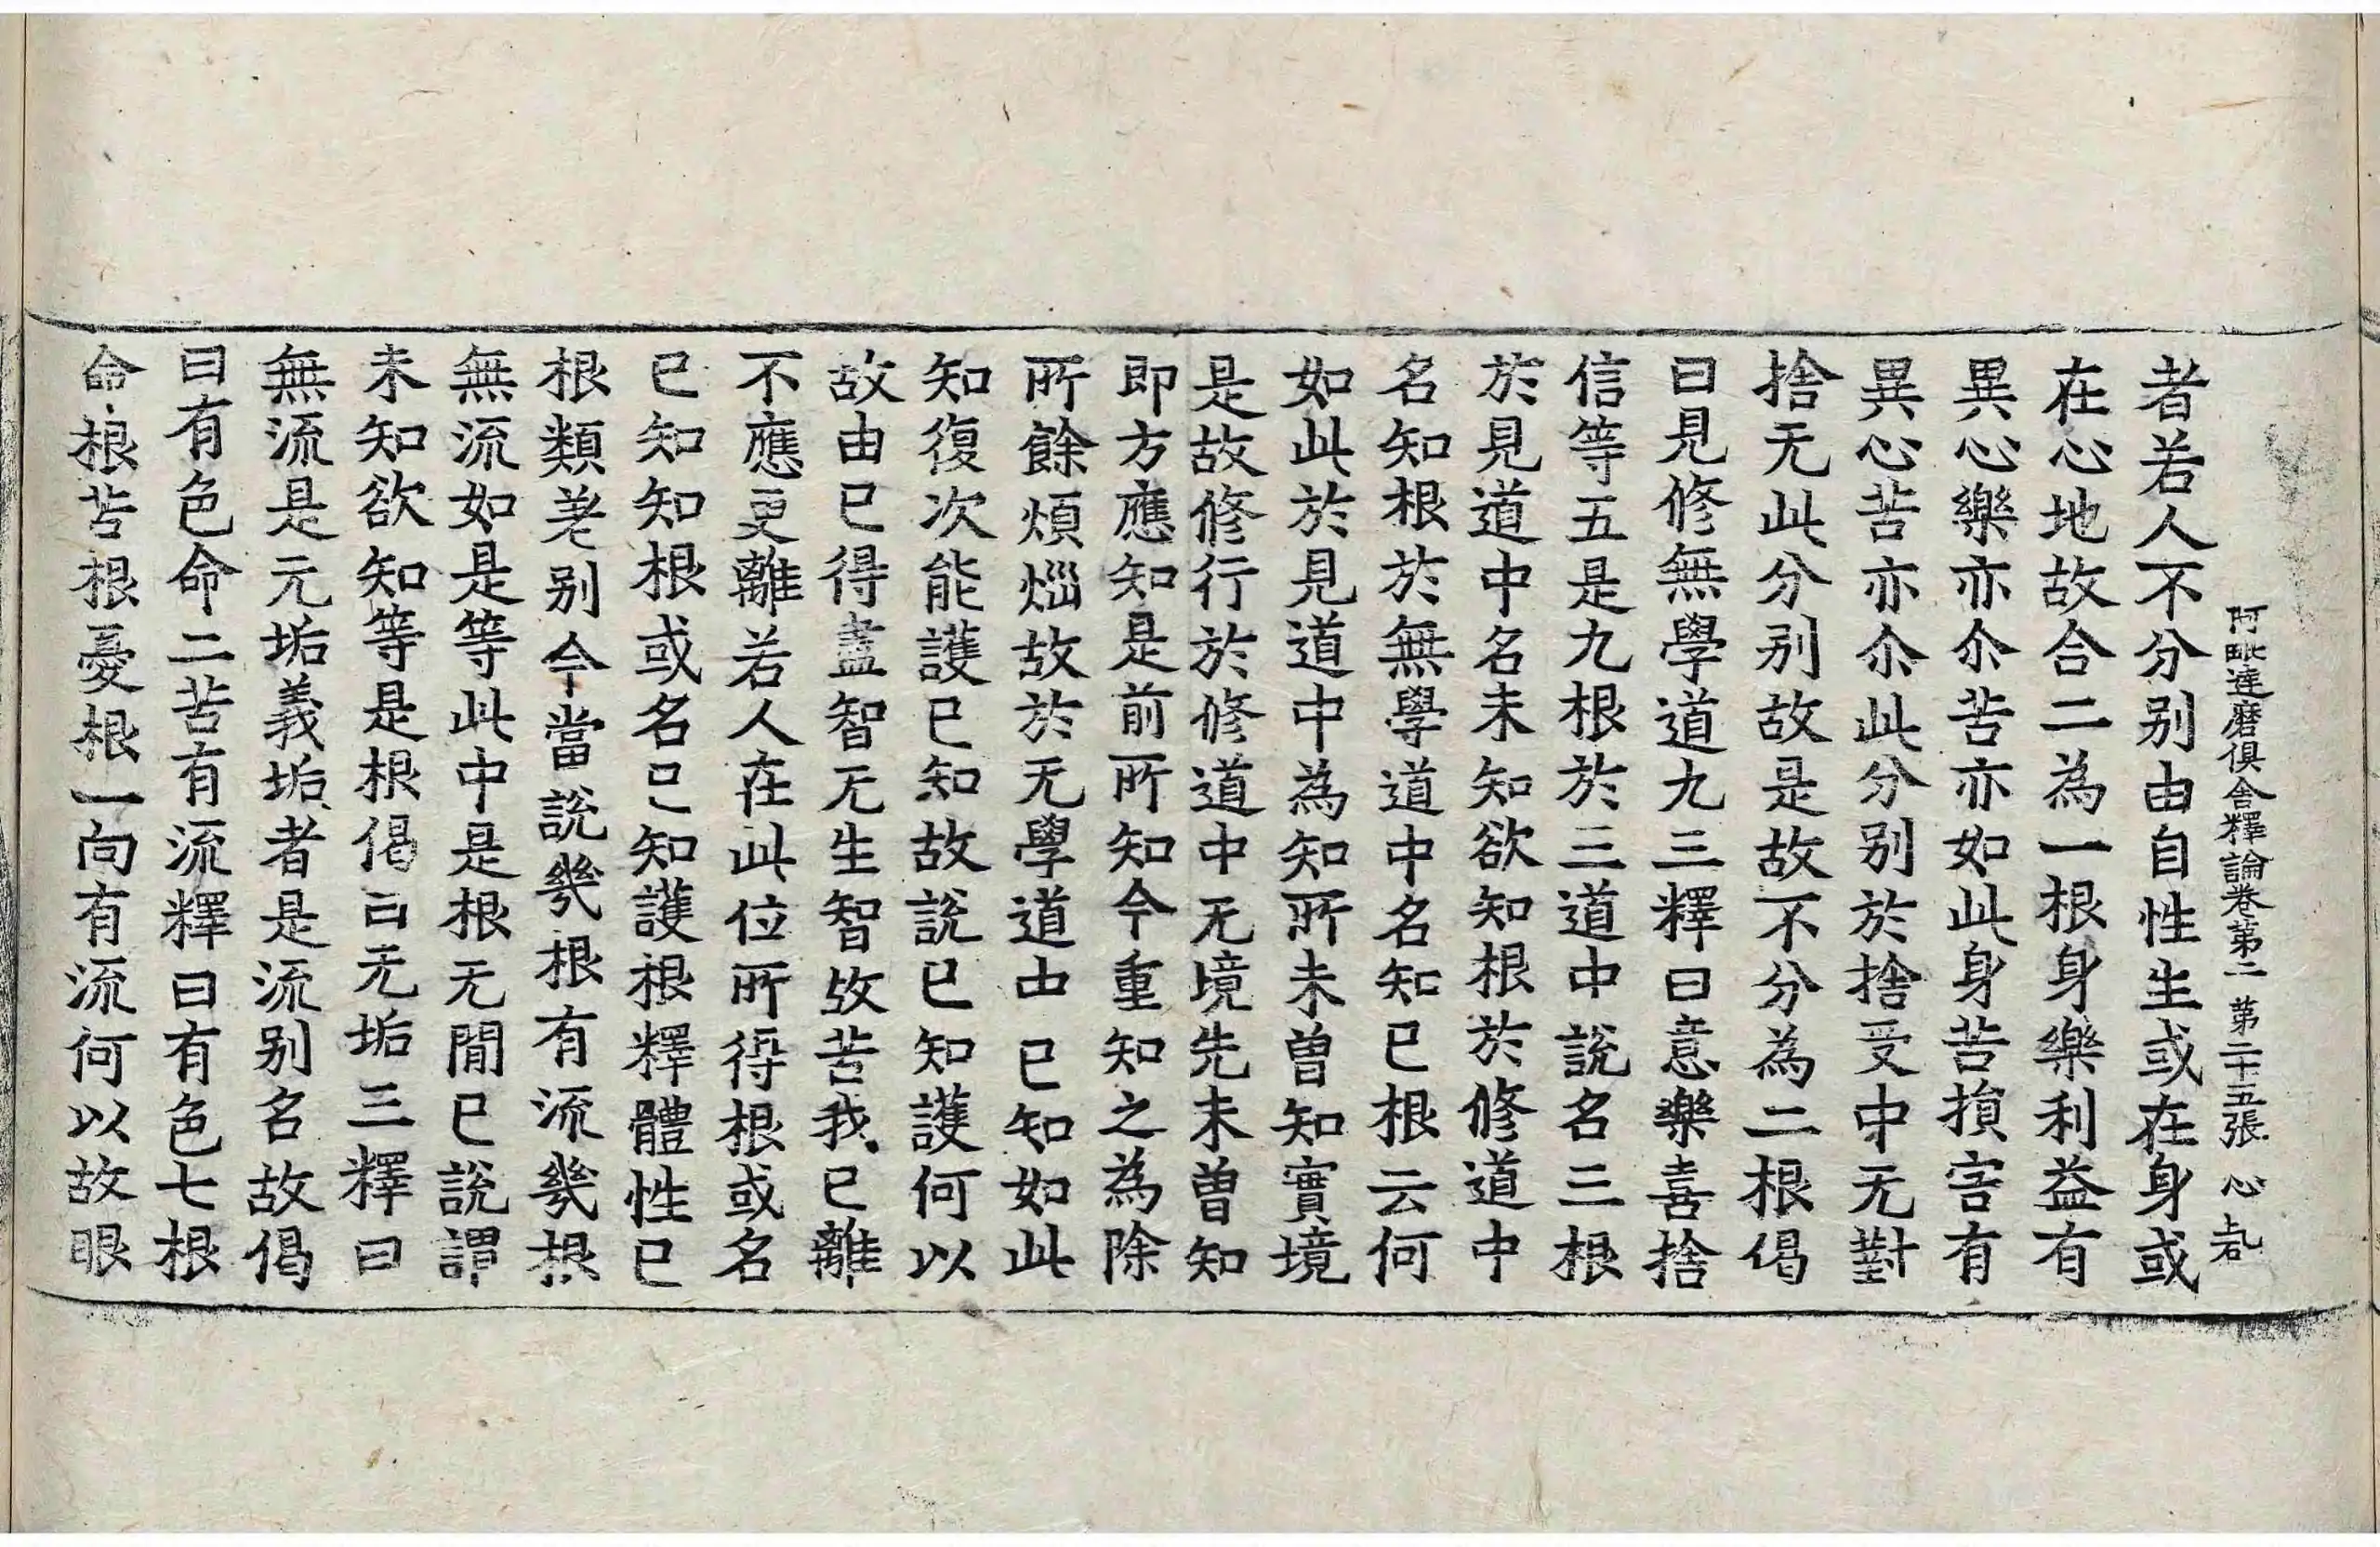 阿毗達磨俱舍釋論卷第二 第二十五張 心
者若人不分別由自性生或在身或
在心地故合二為一根身樂利益有
異心樂亦尒苦亦如此身苦損害有
異心苦亦尒此分別於捨受中无對
捨无此分別故是故不分為二根偈
曰見修無學道九三釋曰意樂喜捨
信等五是九根於三道中說名三根
於見道中名未知欲知根於修道中
名知根於無學道中名知已根云何
如此於見道中為知所未曽知實境
是故修行於修道中无境先未曽知
即方應知是前所知今重知之為除
所餘煩惱故於无學道由已知如此
知復次能護已知故說已知護何以
故由已得盡智无生智故苦我已離
不應更離若人在此位所得根或名
已知知根或名已知護根釋體性已
根類差別今當說幾根有流幾根
無流如是等此中是根无間已說謂
未知欲知等是根偈曰无垢三釋曰
無流是元垢義垢者是流別名故偈
曰有色命二苦有流釋曰有色七根
命根苦根憂根一向有流何以故眼